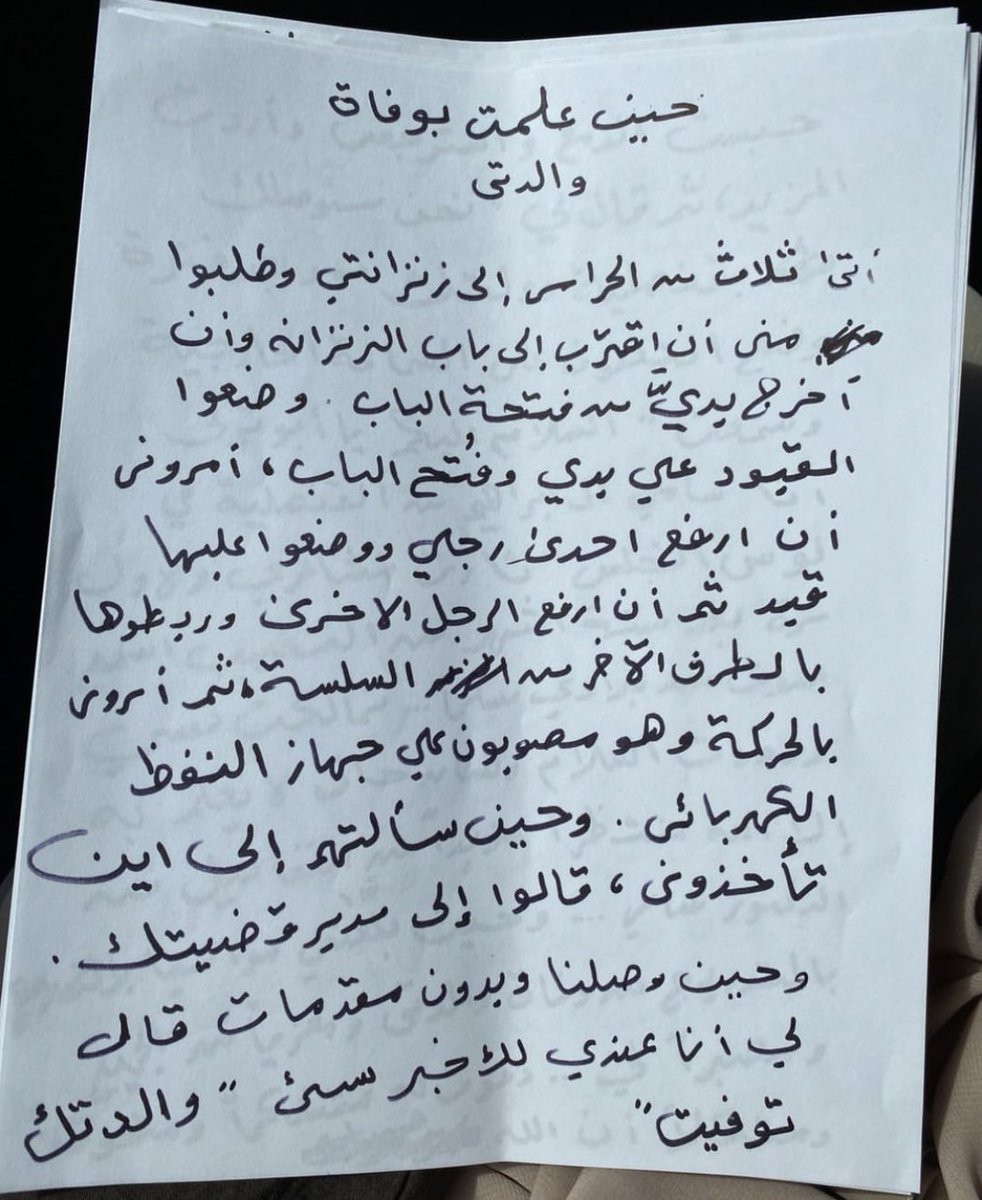 حين علمت بوفاة
والدتي
أتى ثلاث من الحراس إلى زنزانتي وطلبوا
مني أن اقترب إلى باب الزنزانه وأن
أخرج يديّ من فتحة الباب. وضعوا
القيود علي يدي وفُتح الباب، أمروني
أن ارفع احدى رجلي ووضعوا عليها
قيد ثم أن ارفع الرجل الاخرى وربطوها
بالطرف الآخر من السلسة، ثم أمروني
بالحركة وهو مصوبون علي جهاز النفظ
الكهربائي. وحين سألتهم إلى اين
تأخذوني، قالوا إلى مدير قضيتك.
وحين وصلنا وبدون مقدمات قال
لي أنا عندي لك خبر سئ "والدتك
توفيت"